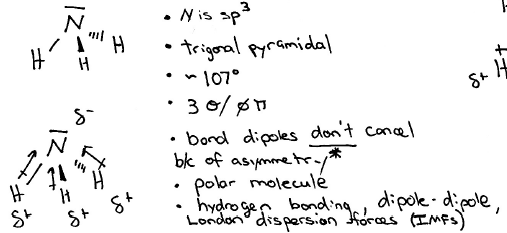 N
H H H
• N is sp³
• trigonal pyramidal
• ~107°
• 3 σ/ ∅ π
δ-
N
H H H
δ+ δ+ δ+
• bond dipoles don't cancel
b/c of asymmetry *
• polar molecule
• hydrogen bonding, dipole-dipole,
London dispersion forces (IMFs)
+
δ+ H